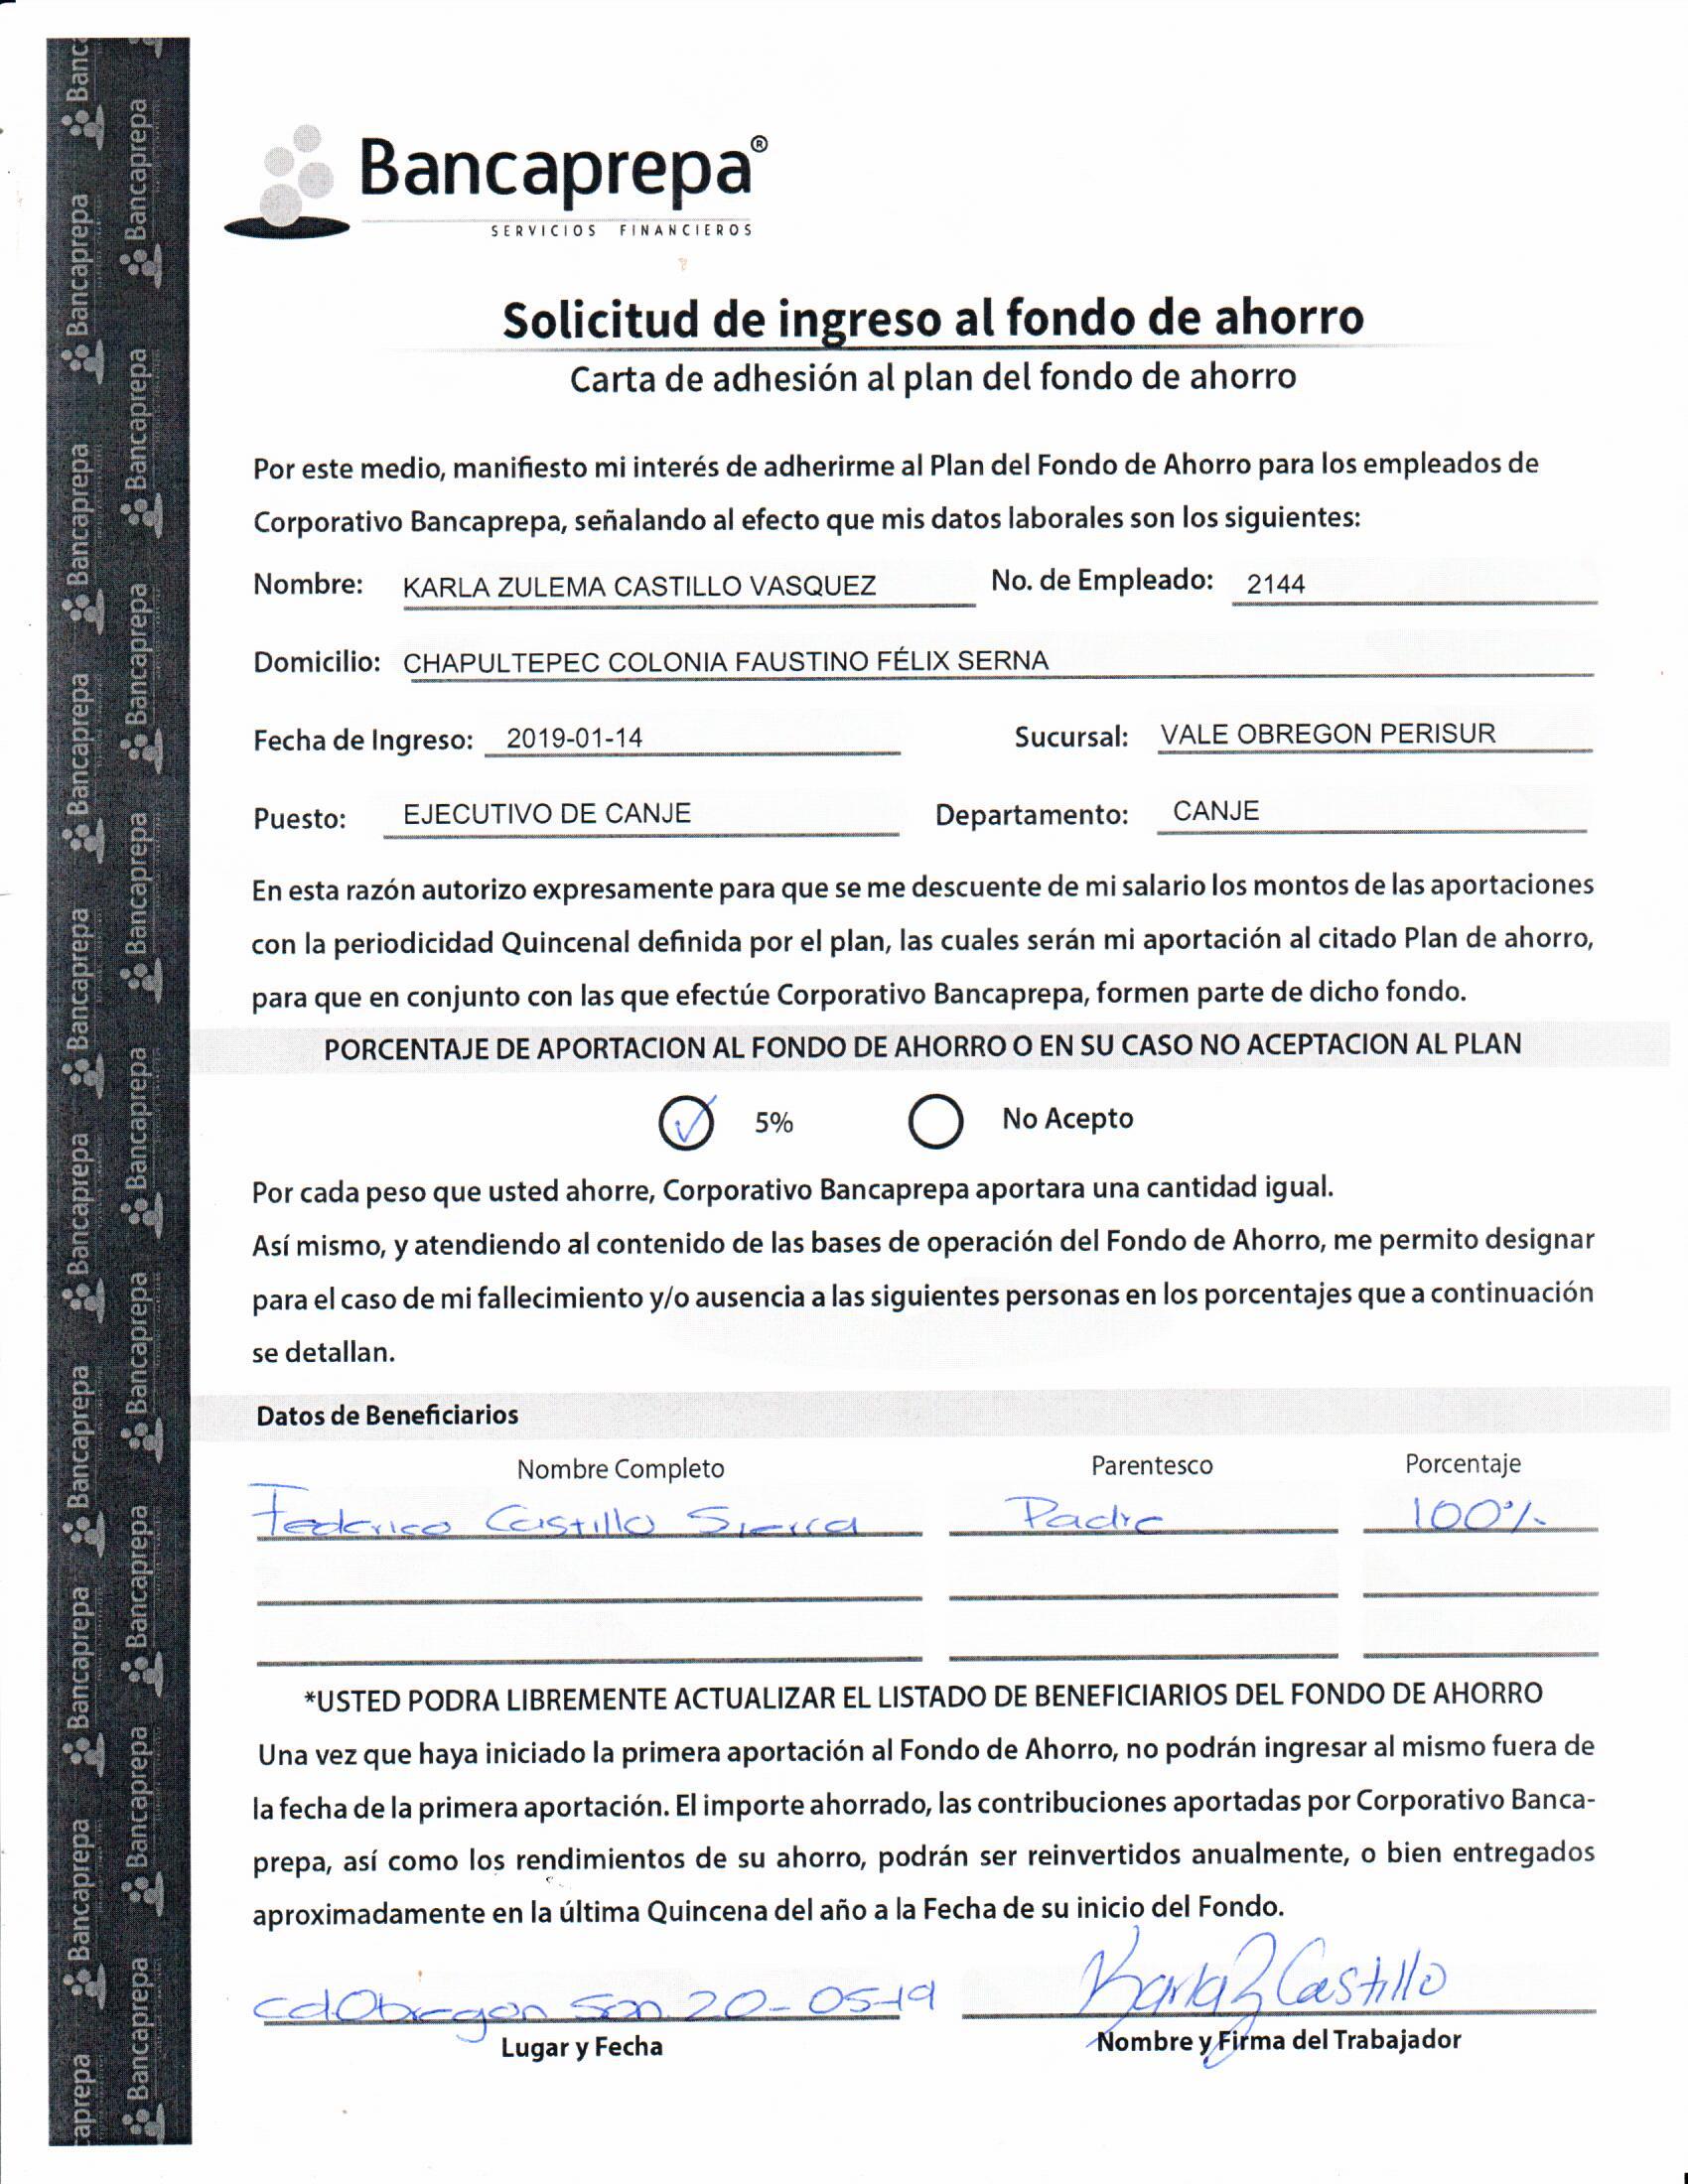 Bancaprepa®
SERVICIOS FINANCIEROS
Solicitud de ingreso al fondo de ahorro
Carta de adhesión al plan del fondo de ahorro
Por este medio, manifiesto mi interés de adherirme al Plan del Fondo de Ahorro para los empleados de
Corporativo Bancaprepa, señalando al efecto que mis datos laborales son los siguientes:
Nombre: KARLA ZULEMA CASTILLO VASQUEZ No. de Empleado: 2144
Domicilio: CHAPULTEPEC COLONIA FAUSTINO FÉLIX SERNA
Fecha de Ingreso: 2019-01-14 Sucursal: VALE OBREGON PERISUR
Puesto: EJECUTIVO DE CANJE Departamento: CANJE
En esta razón autorizo expresamente para que se me descuente de mi salario los montos de las aportaciones
con la periodicidad Quincenal definida por el plan, las cuales serán mi aportación al citado Plan de ahorro,
para que en conjunto con las que efectúe Corporativo Bancaprepa, formen parte de dicho fondo.
PORCENTAJE DE APORTACION AL FONDO DE AHORRO O EN SU CASO NO ACEPTACION AL PLAN
5% No Acepto
Por cada peso que usted ahorre, Corporativo Bancaprepa aportara una cantidad igual.
Así mismo, y atendiendo al contenido de las bases de operación del Fondo de Ahorro, me permito designar
para el caso de mi fallecimiento y/o ausencia a las siguientes personas en los porcentajes que a continuación
se detallan.
Datos de Beneficiarios
Nombre Completo Parentesco Porcentaje
Federico Castillo Sierra Padre 100%
*USTED PODRA LIBREMENTE ACTUALIZAR EL LISTADO DE BENEFICIARIOS DEL FONDO DE AHORRO
Una vez que haya iniciado la primera aportación al Fondo de Ahorro, no podrán ingresar al mismo fuera de
la fecha de la primera aportación. El importe ahorrado, las contribuciones aportadas por Corporativo Banca-
prepa, así como los rendimientos de su ahorro, podrán ser reinvertidos anualmente, o bien entregados
aproximadamente en la última Quincena del año a la Fecha de su inicio del Fondo.
cd.Obregon Son. 20-05-19 Karla Z Castillo
Lugar y Fecha Nombre y Firma del Trabajador